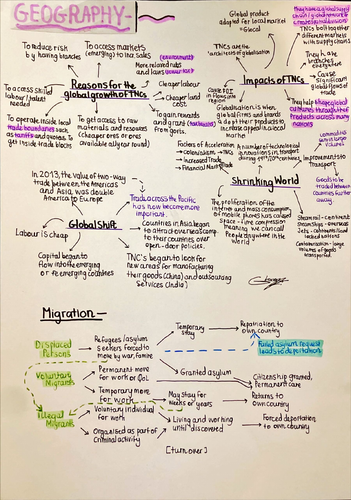 GEOGRAPHY-
To reduce risk
by having branches
To access markets
(emerging) to inc. sales
(environment)
More relaxed rules
and laws
To access skilled
labour/talent
needed
Reasons for the
global growth of TNCs
Cheaper labour
Cheaper land
cost
To operate inside local
trade boundaries
as tariffs and quotas to
get inside trade blocks
To get access to raw
materials and resources
(cheaper ones or ones
available all year round)
To gain rewards
and grants
from govts.
Global product
adapted for local market
=Glocal
TNCs are the
'architects of globalisation'
TNCs bolt together
different markets
with supply chains
They have
branches
everywhere
Impacts of TNCs
Cause
significant
global flows of
trade
They help shape global
cultures, introduction of
products across many
nations
Glocalisation is when
global firms and brands
adapt their products to
increase appeal in local
market
Factors of Acceleration
→ colonialism → TNCs
→ Increased Trade
→ Financial Markets
A number of technological
innovations in transport
during 19th/20th century
Improvements to
Transport
Shrinking World
Goods to be
traded between
countries further
away.
The proliferation of the
internet and mass consumption
of mobile phones has caused
space-time compression
meaning we can call
people anywhere in the
world
In 2013, the value of two-way
trade between the Americas
and Asia, was double
America to Europe
Trade across the Pacific
has now become more
important.
Global Shift
Labour is cheap
Countries in Asia began
to attract overseas comp.
to their countries over
open-door policies.
Capital began to
flow into the emerging
or re-emerging countries
TNC's began to look for
new areas for manufacturing
their goods (China) and outsourcing
services (India)
Migration-
Displaced
Persons
Refugees/asylum
seekers forced to
move by war, famine
Temporary
stay
Repatriation to
own country
Failed asylum request
leads to deportation
Voluntary
Migrants
Permanent move
for work or QoL
Granted asylum
Citizenship granted,
Permanent care
Temporary move
for work
May stay for
weeks or years
Returns to
Own country
Illegal
Migrants
Voluntary individual
for work
Organised as part of
criminal activity
Living and working
until discovered
Forced deportation
to own country.
[turn over]